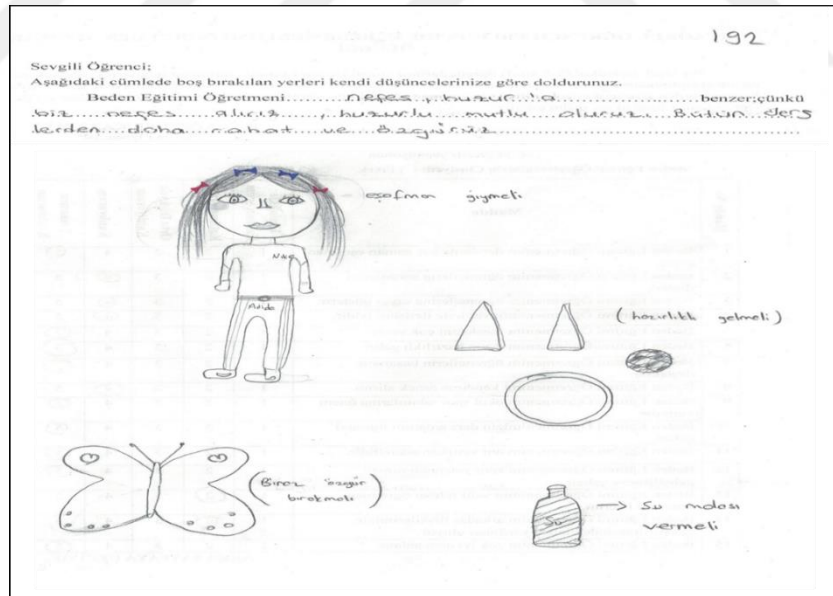 192
Sevgili Öğrenci;
Aşağıdaki cümlede boş bırakılan yerleri kendi düşüncelerinize göre doldurunuz.
Beden Eğitimi Öğretmeni......nefes, huzur'a......benzer;çünkü
biz nefes alırız, huzurlu mutlu oluruz. Bütün ders
lerden daha rahat ve özgürüz
eşofman giymeli
Adida
(hazırlıklı gelmeli)
(Biraz özgür
bırakmalı)
Su
→ Su molası
vermeli